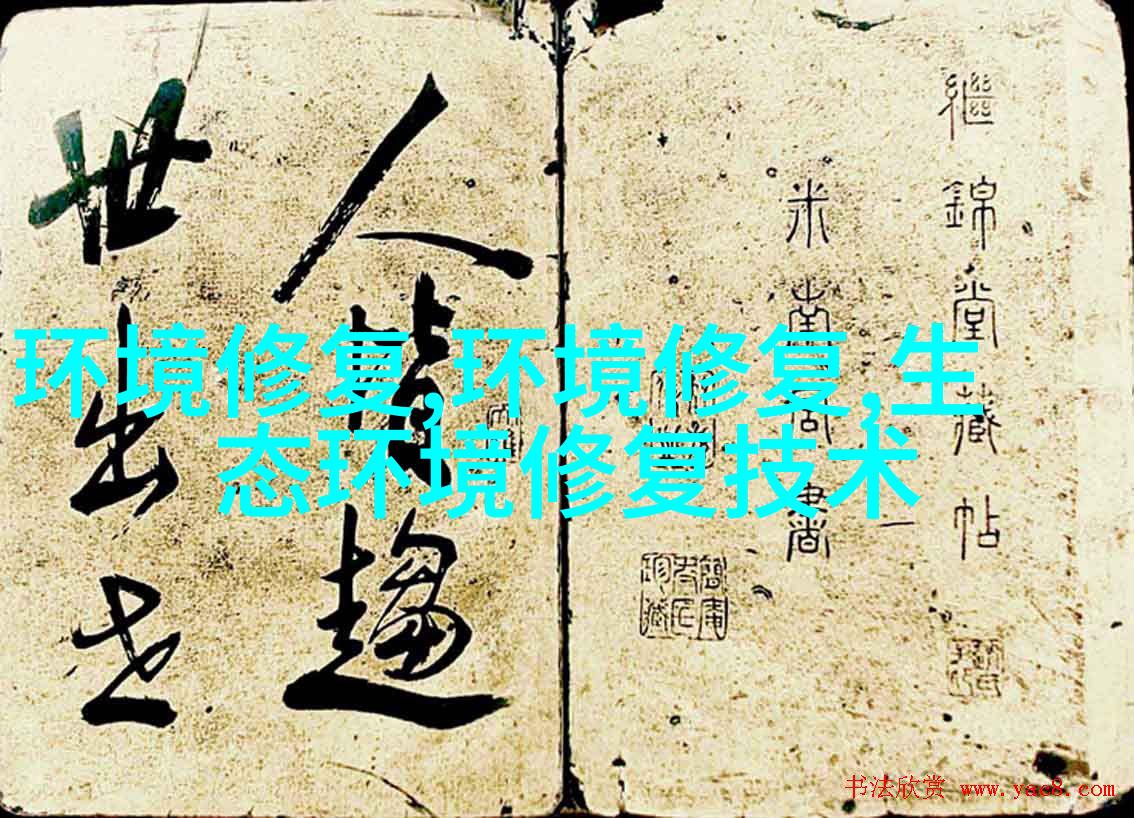 环境修复,环境修复,生
态环境修复技术
繼錦堂藏帖
米南宮書
人皆趨
世出世
书法欣赏 www.yac8.com